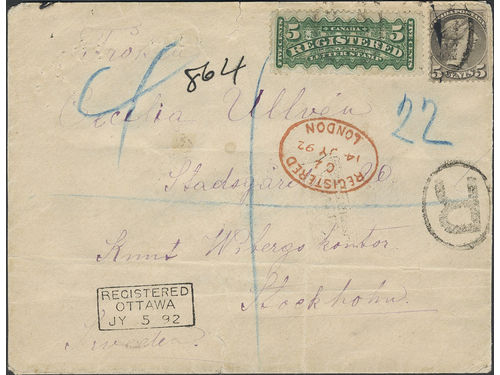 5 CANADA 5
REGISTERED
LETTER STAMP
5 CENTS 5
864
Cecilia Ullvén
22
REGISTERED
14 JY 92
LONDON
Stadsgården 20
R
Knut Wibergs kontor
REGISTERED
OTTAWA
JY 5 92
Stockholm
Sweden